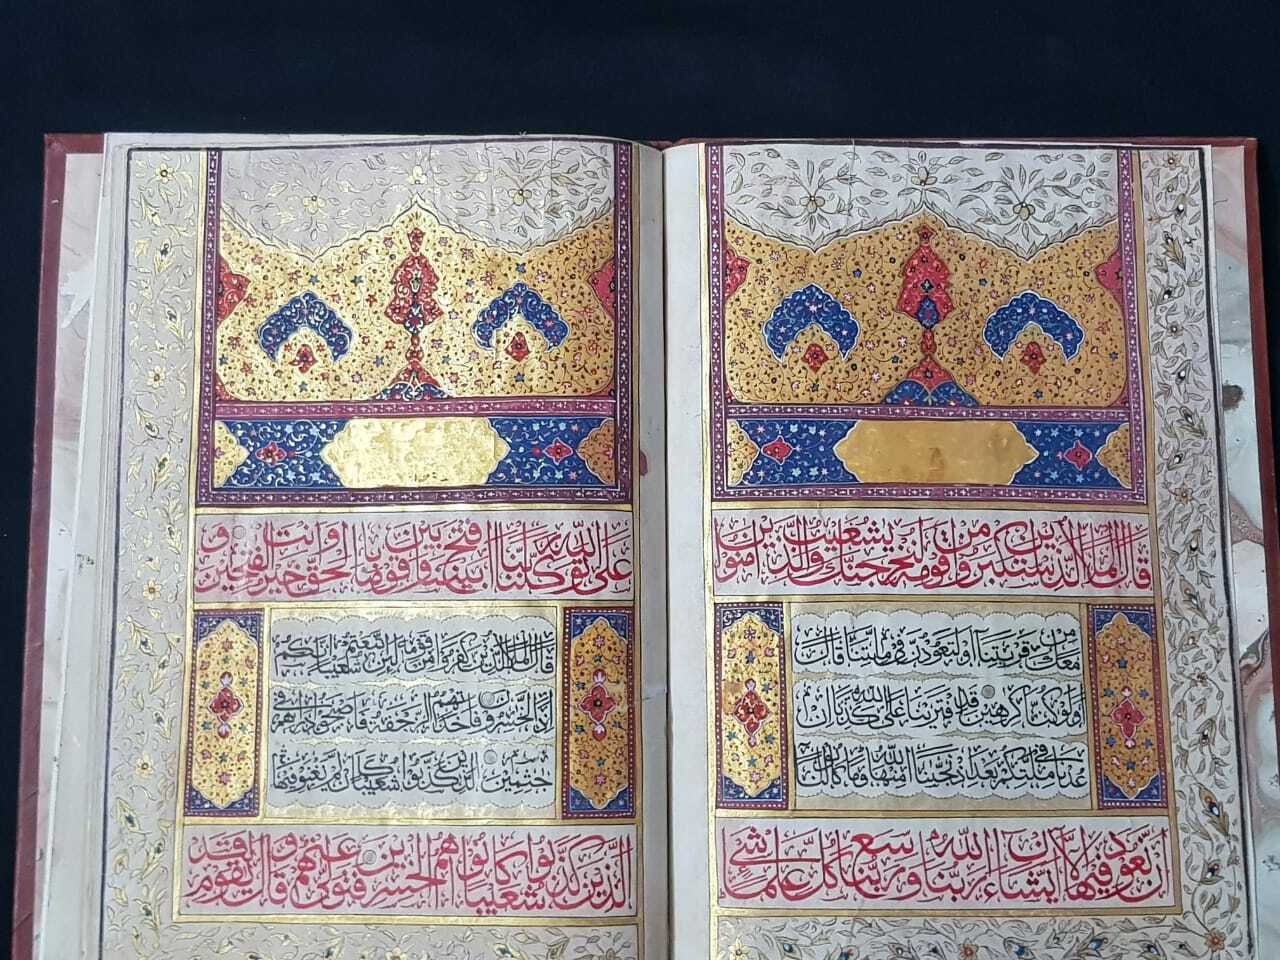 قال الملا الذين استكبروا من قومه لنخرجنك يشعيب والذين امنوا
معك من قريتنا او لتعودن في ملتنا قال
اولو كنا كرهين قد افترينا على الله كذبا ان
عدنا في ملتكم بعد اذ نجينا الله منها وما يكون لنا
ان نعود فيها الا ان يشاء الله ربنا وسع ربنا كل شيء علما
على الله توكلنا ربنا افتح بيننا وبين قومنا بالحق وانت خير الفتحين و
قال الملا الذين كفروا من قومه لئن اتبعتم شعيبا انكم
اذا لخسرون فاخذتهم الرجفة فاصبحوا في دارهم
جثمين الذين كذبوا شعيبا كان لم يغنوا فيها
الذين كذبوا شعيبا كانوا هم الخسرين فتولى عنهم وقال يقوم لقد